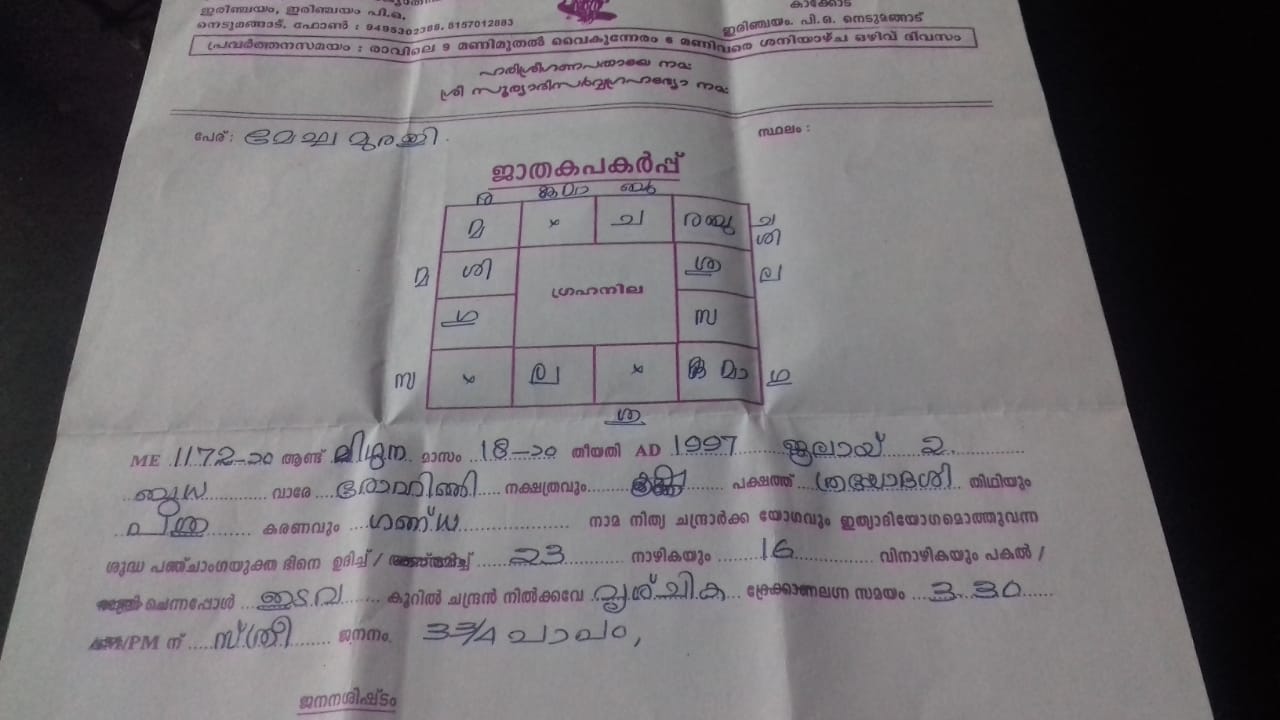 ഇരിഞ്ചയം, ഇരിഞ്ചയം പി.ഒ.
നെടുമങ്ങാട്. ഫോൺ : 9495302389, 8157012883
ഇരിഞ്ചയം. പി. ഒ. നെടുമങ്ങാട്
പ്രവർത്തനസമയം : രാവിലെ 9 മണിമുതൽ വൈകുന്നേരം 6 മണിവരെ ശനിയാഴ്ച ഒഴിവ് ദിവസം
ഹരിശ്രീഗണപതായെ നമഃ
ശ്രീ സൂര്യാദിസർവ്വഗ്രഹഭ്യോ നമഃ
പേര് : മേഘ മുരളി. സ്ഥലം :
ജാതകപകർപ്പ്
മ × ച
മ ശി ല
ഗ്രഹനില
സ
സ × ല ×
ME 1172-ാ൦ ആണ്ട് മിഥുന മാസം 18-ാ൦ തീയതി AD 1997 ജൂലായ് 2.
ബുധ വാരേ രോഹിണി നക്ഷത്രവും കൃഷ്ണ പക്ഷത്ത് ത്രയോദശി തിഥിയും
കരണവും ഗണ്ഡ നാമ നിത്യ ചന്ദ്രാർക്ക യോഗവും ഇത്യാദിയോഗമൊത്തുവന്ന
ശുദ്ധ പഞ്ചാംഗയുക്ത ദിനെ ഉദിച്ച് / അസ്തമിച്ച് 23 നാഴികയും 16 വിനാഴികയും പകൽ /
ചെന്നപ്പോൾ ഇടവ കൂറിൽ ചന്ദ്രൻ നിൽക്കവേ വൃശ്ചിക ദ്രേക്കാണലഗ്ന സമയം 3.30
/PM ന് സ്ത്രീ ജനനം. 3 3/4
ജനനശിഷ്ടം